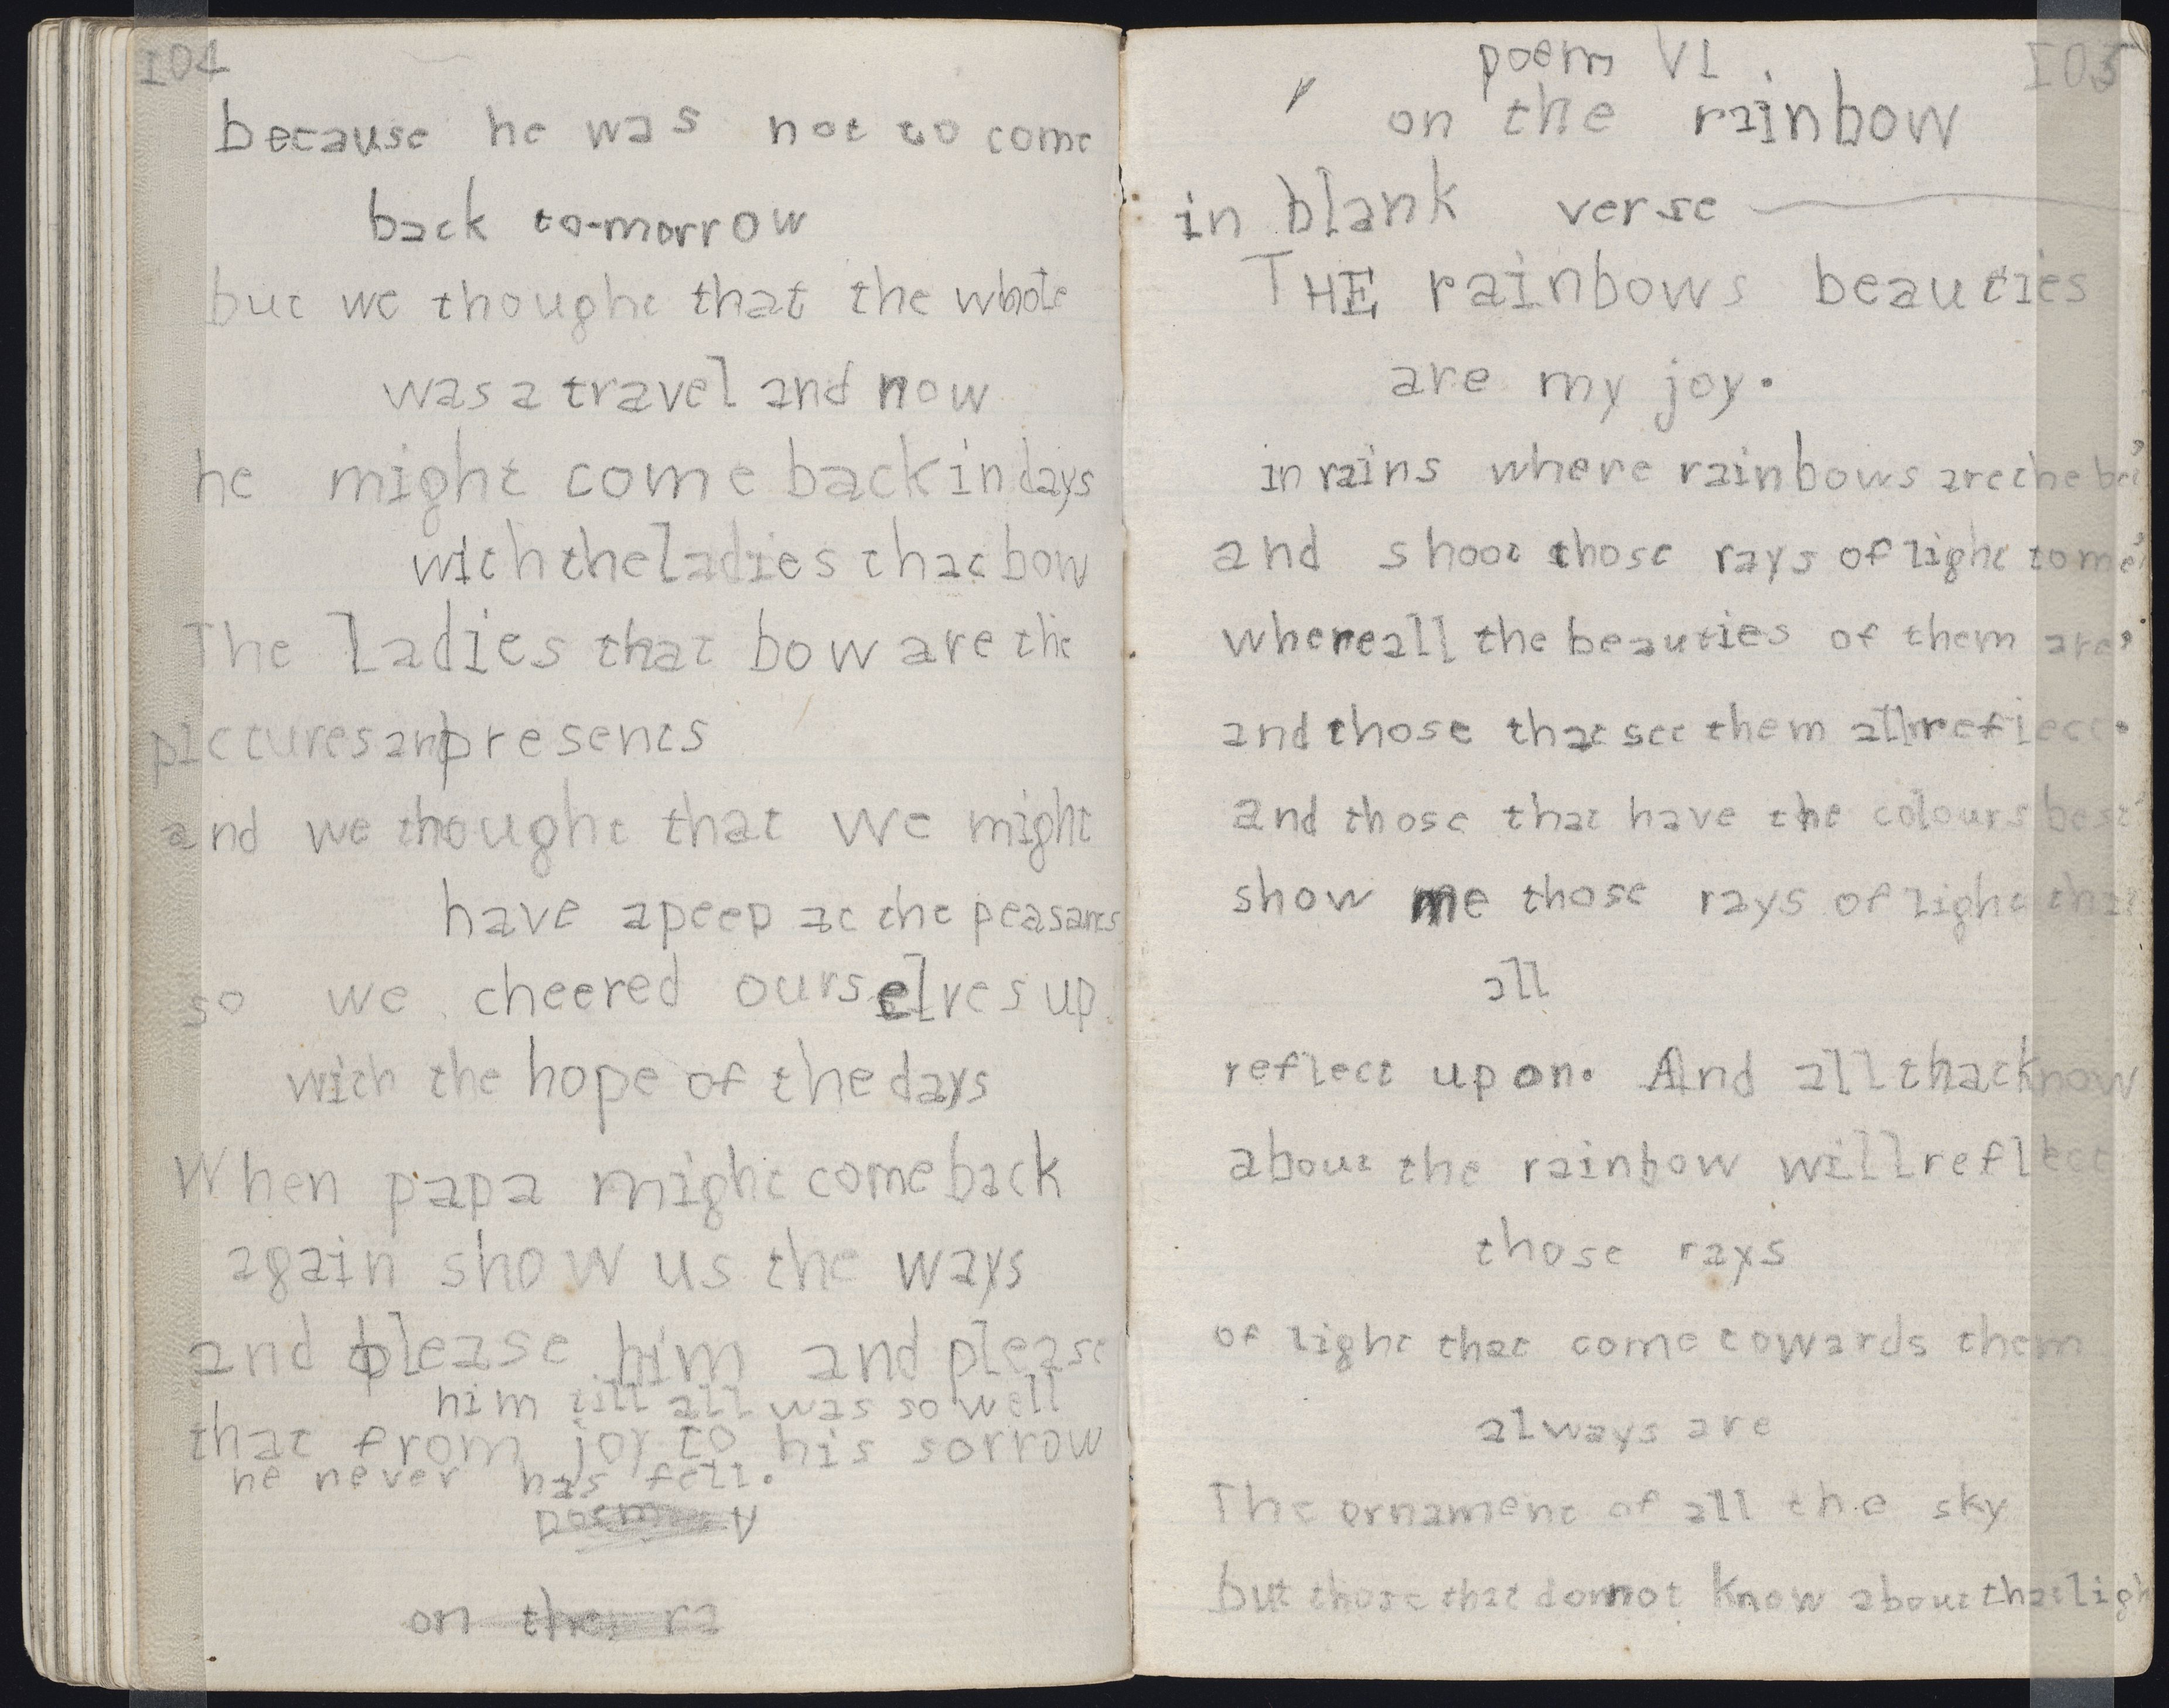 104
because he was not to come
back to-morrow
but we thought that the whole
was a travel and now
he might come back in days
with the ladies that bow
The ladies that bow are the
pictures and presents
and we thought that we might
have a peep at the peasants
so we cheered ourselves up
with the hope of the days
When papa might come back
again show us the ways
and please him and please
him till all was so well
that from joy to his sorrow
he never has fell.
poem V
on the ra
105
poem VI.
on the rainbow
in blank verse
THE rainbows beauties
are my joy.
in rains where rainbows are the
and shoot those rays of light to me
where all the beauties of them are,
and those that see them all reflect.
and those that have the colours best
show me those rays of light that
all
reflect upon. And all that know
about the rainbow will reflect
those rays
of light that come towards them
always are
The ornament of all the sky
but those that do not know about that ligh